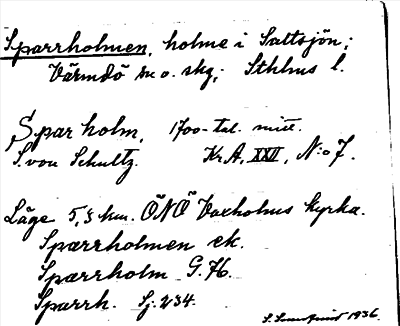 Sparrholmen, holme i Saltsjön;
Värmdö sn o. skg; Sthlms l.
Sparholm, 1700-tal. mitt.
S. von Schultz. Kr.A. XXII, N:o 7.
Läge 5,8 km. ÖNÖ Vaxholms kyrka.
Sparrholmen ek.
Sparrholm G. 76.
Sparrh. Sj. 234.
1936